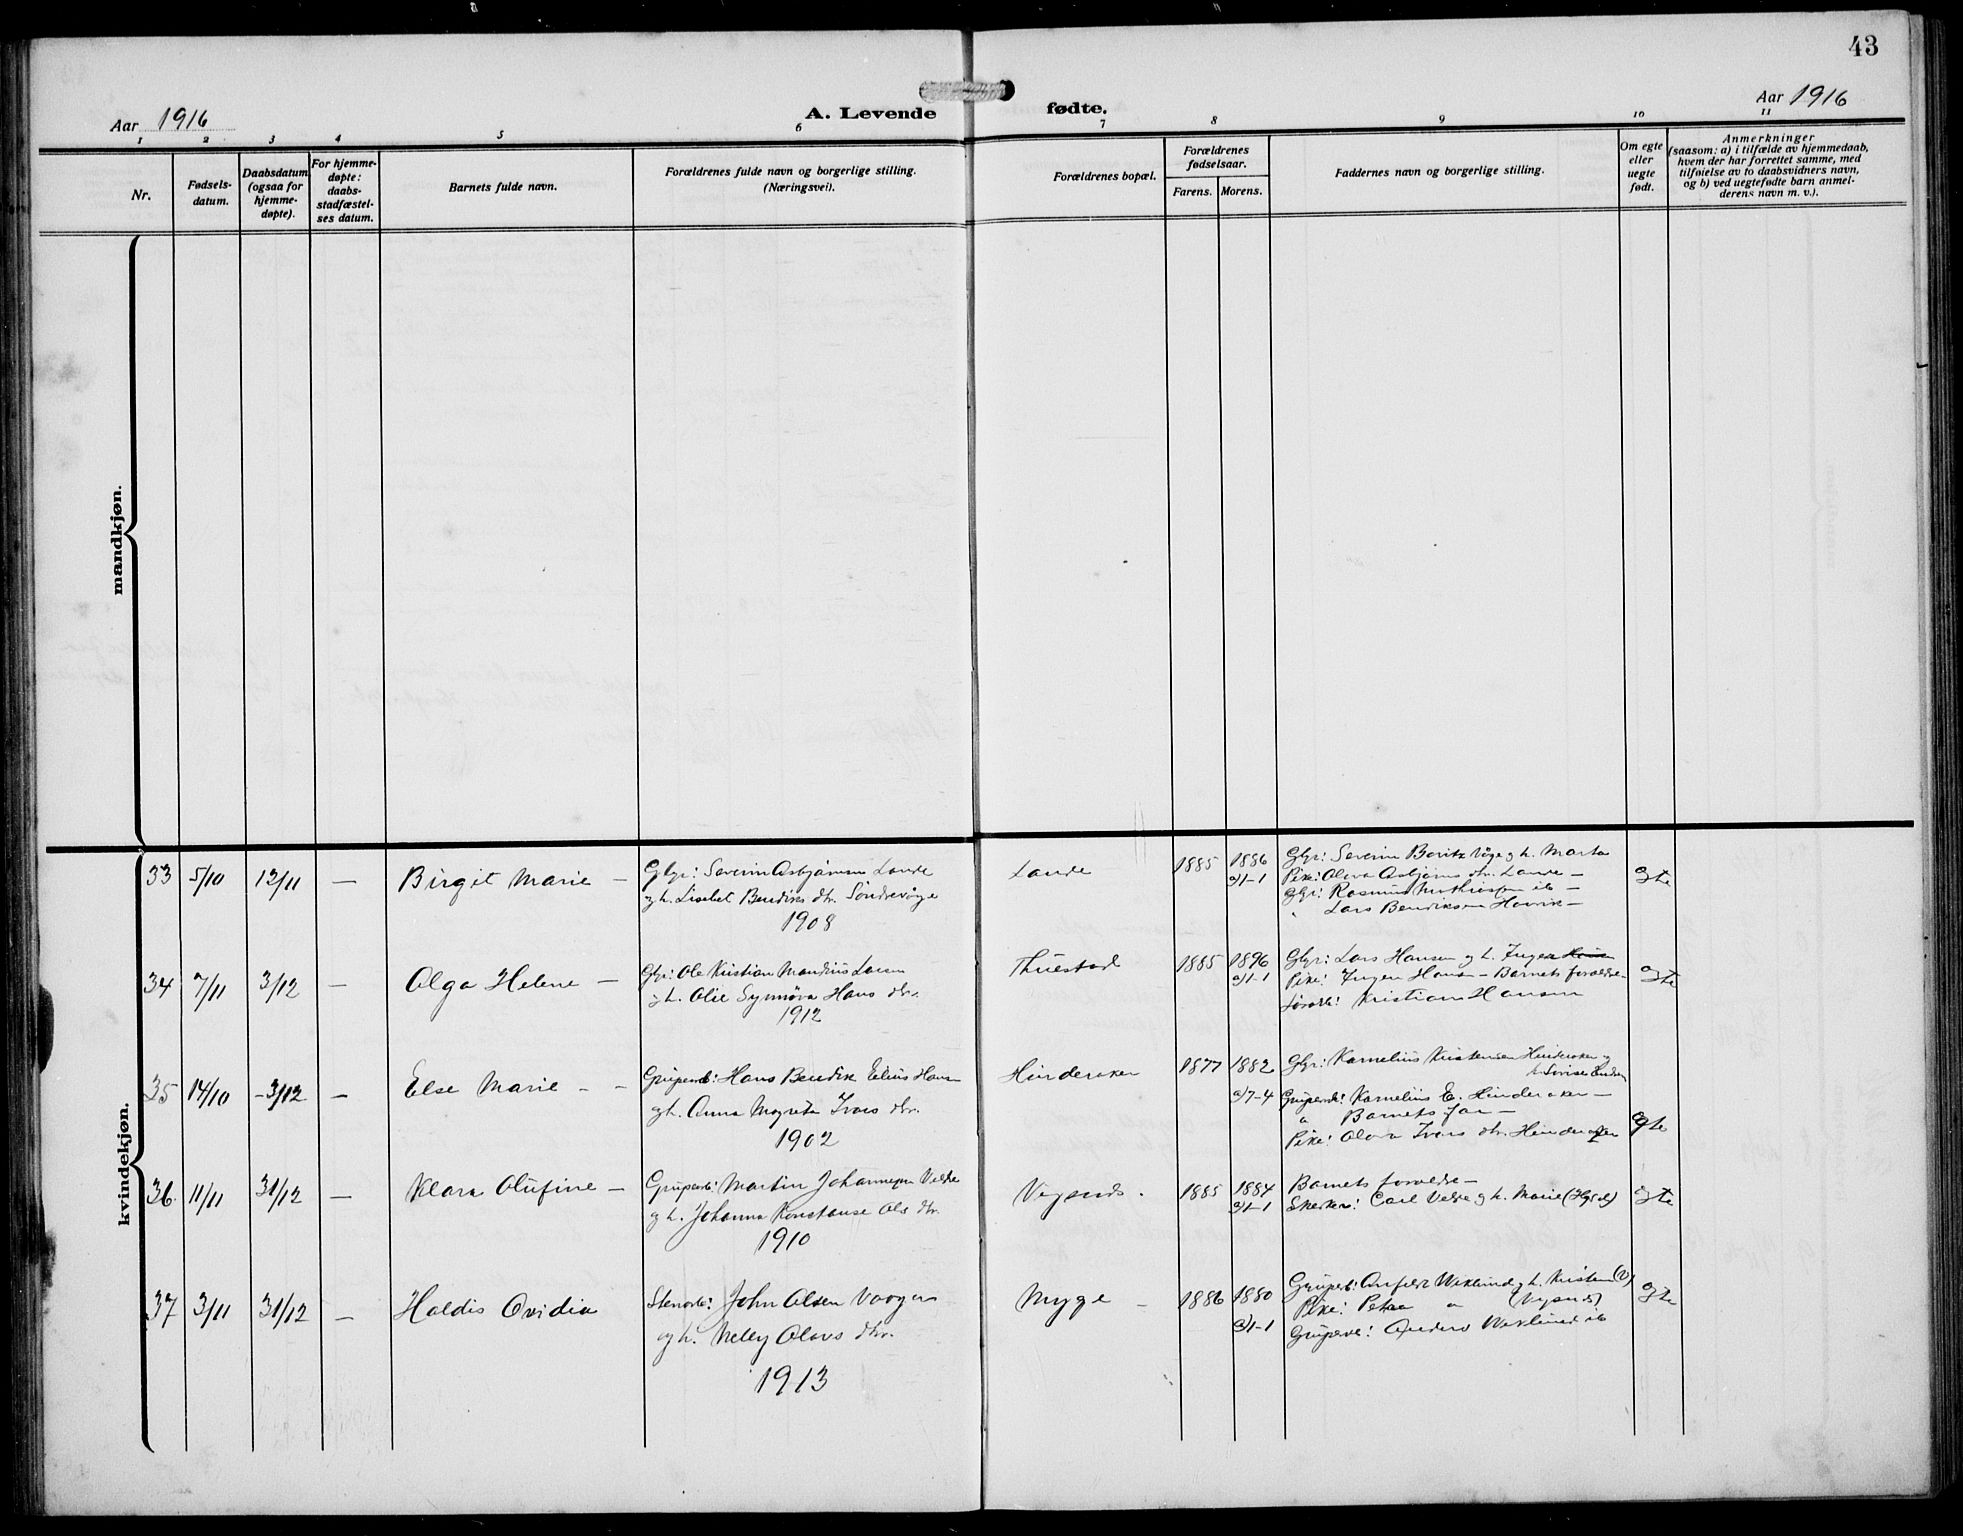 43
Aar 1916
A. Levende fødte.
Aar 1916
1 2 3 4 5 6 7 8 9 10 11
Nr.
Fødsels-
datum.
Daabsdatum
(ogsaa for
hjemme-
døpte).
For hjemme-
døpte:
daabs-
stadfæstel-
ses datum.
Barnets fulde navn.
Forældrenes fulde navn og borgerlige stilling.
(Næringsvei).
Forældrenes bopæl.
Forældrenes
fødselsaar.
Farens. Morens.
Faddernes navn og borgerlige stilling.
Om egte
eller
uegte
født.
Anmerkninger
(saasom: a) i tilfælde av hjemmedaab,
hvem der har forrettet samme, med
tilføielse av to daabsvidners navn,
og b) ved uegtefødte barn anmel-
derens navn m. v.).
mandkjøn.
kvindekjøn.
33 5/10 12/11 — Birgit Marie —
Gbr: Severin Asbjørnsen Lande
og h. Lisebet Bendiks dtr. Søndrevåge
1908
Lande
1885 1886
a)1-1
Gbr: Severin Våge og h. Marta
Pike: Olava Asbjørns dtr. Lande —
Gbr: Rasmus ib —
" Lars Bendiksen Havik —
egte
34 7/11 3/12 — Olga Helene —
Gbr: Ole Kristian Mandius Larsen
og h. Olie Synnöva Hans dtr.
1912
Thuestad
1885 1896
a)1-1
Gbr: Lars Hansen og h. Inger
Pike: Inger Hansen — Barnets forældre —
Kristian Hansen
egte
35 14/10 — 3/12 — Else Marie — —
Grubearb: Hans Bendik Elius Hansen
og h. Anna Magreta Ivars dtr.
1902
Hinderaker
1877 1882
a)7-4
Gbr: Kornelius Kristensen Hinderaker og
h.
Grubearb: Kornelius E. Hinderaker —
" Barnets far —
Pike: Olava Ivars dtr. Hinderaker
egte
36. 11/11 31/12 — Klara Olufine —
Grubearb: Martin Johannessen Velde
og h. Johanna Konstanse Ols dtr.
1910
Vigsnes.
1885 1884
a)1-1
Barnets forældre —
Snekker: Carl Velde og h. Marie
egte
37 3/11 31/12 — Haldis Ovidia
Stenarb: John Olsen Vaagen
og h. Nelly Olavs dtr.
1913
Nyge —
1886 1880
a)1-1
Grubearb: Wiklund og h. Kristen
Pike: Petra " (Vigsnes)
Grubearb: Anders Wiklund ib
egte